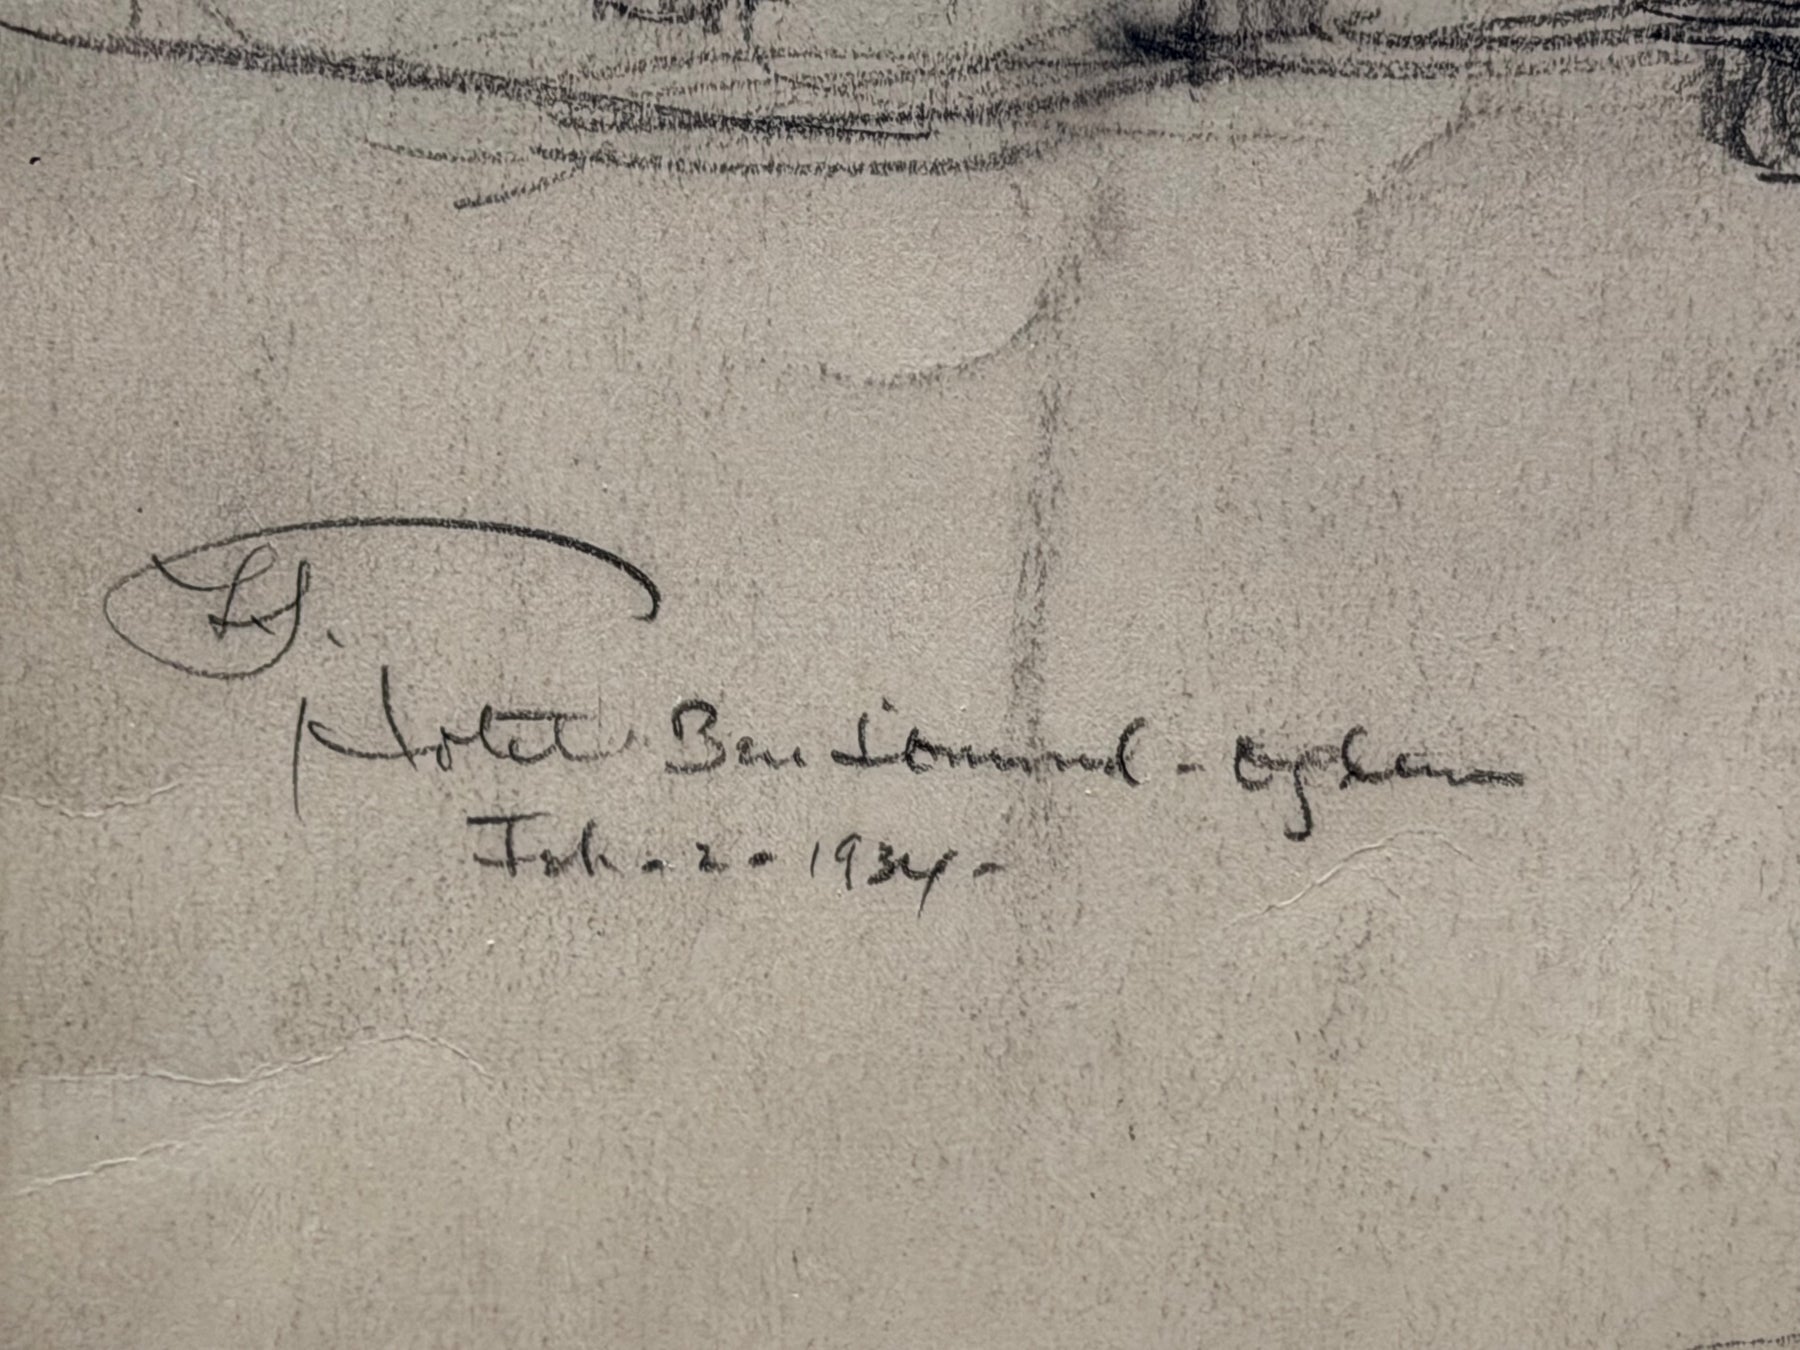 Hotel Ben Lomond - Ogden
Feb - 2 - 1934 -